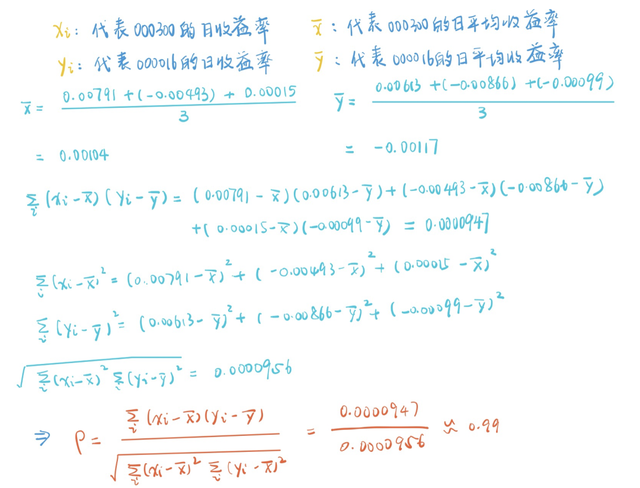 xᵢ：代表000300的日收益率 x̄：代表000300的日平均收益率
yᵢ：代表000016的日收益率 ȳ：代表000016的日平均收益率
x̄ = (0.00791 + (-0.00493) + 0.00015) / 3 ȳ = (0.00613 + (-0.00866) + (-0.00099)) / 3
= 0.00104 = -0.00117
∑ᵢ (xᵢ - x̄)(yᵢ - ȳ) = (0.00791 - x̄)(0.00613 - ȳ) + (-0.00493 - x̄)(-0.00866 - ȳ)
+ (0.00015 - x̄)(-0.00099 - ȳ) = 0.0000947
∑ᵢ (xᵢ - x̄)² = (0.00791 - x̄)² + (-0.00493 - x̄)² + (0.00015 - x̄)²
∑ᵢ (yᵢ - ȳ)² = (0.00613 - ȳ)² + (-0.00866 - ȳ)² + (-0.00099 - ȳ)²
√(∑ᵢ (xᵢ - x̄)² ∑ᵢ (yᵢ - ȳ)²) = 0.0000956
⇒ ρ = ∑ᵢ (xᵢ - x̄)(yᵢ - ȳ) / √(∑ᵢ (xᵢ - x̄)² ∑ᵢ (yᵢ - x̄)²) = 0.0000947 / 0.0000956 ≈ 0.99